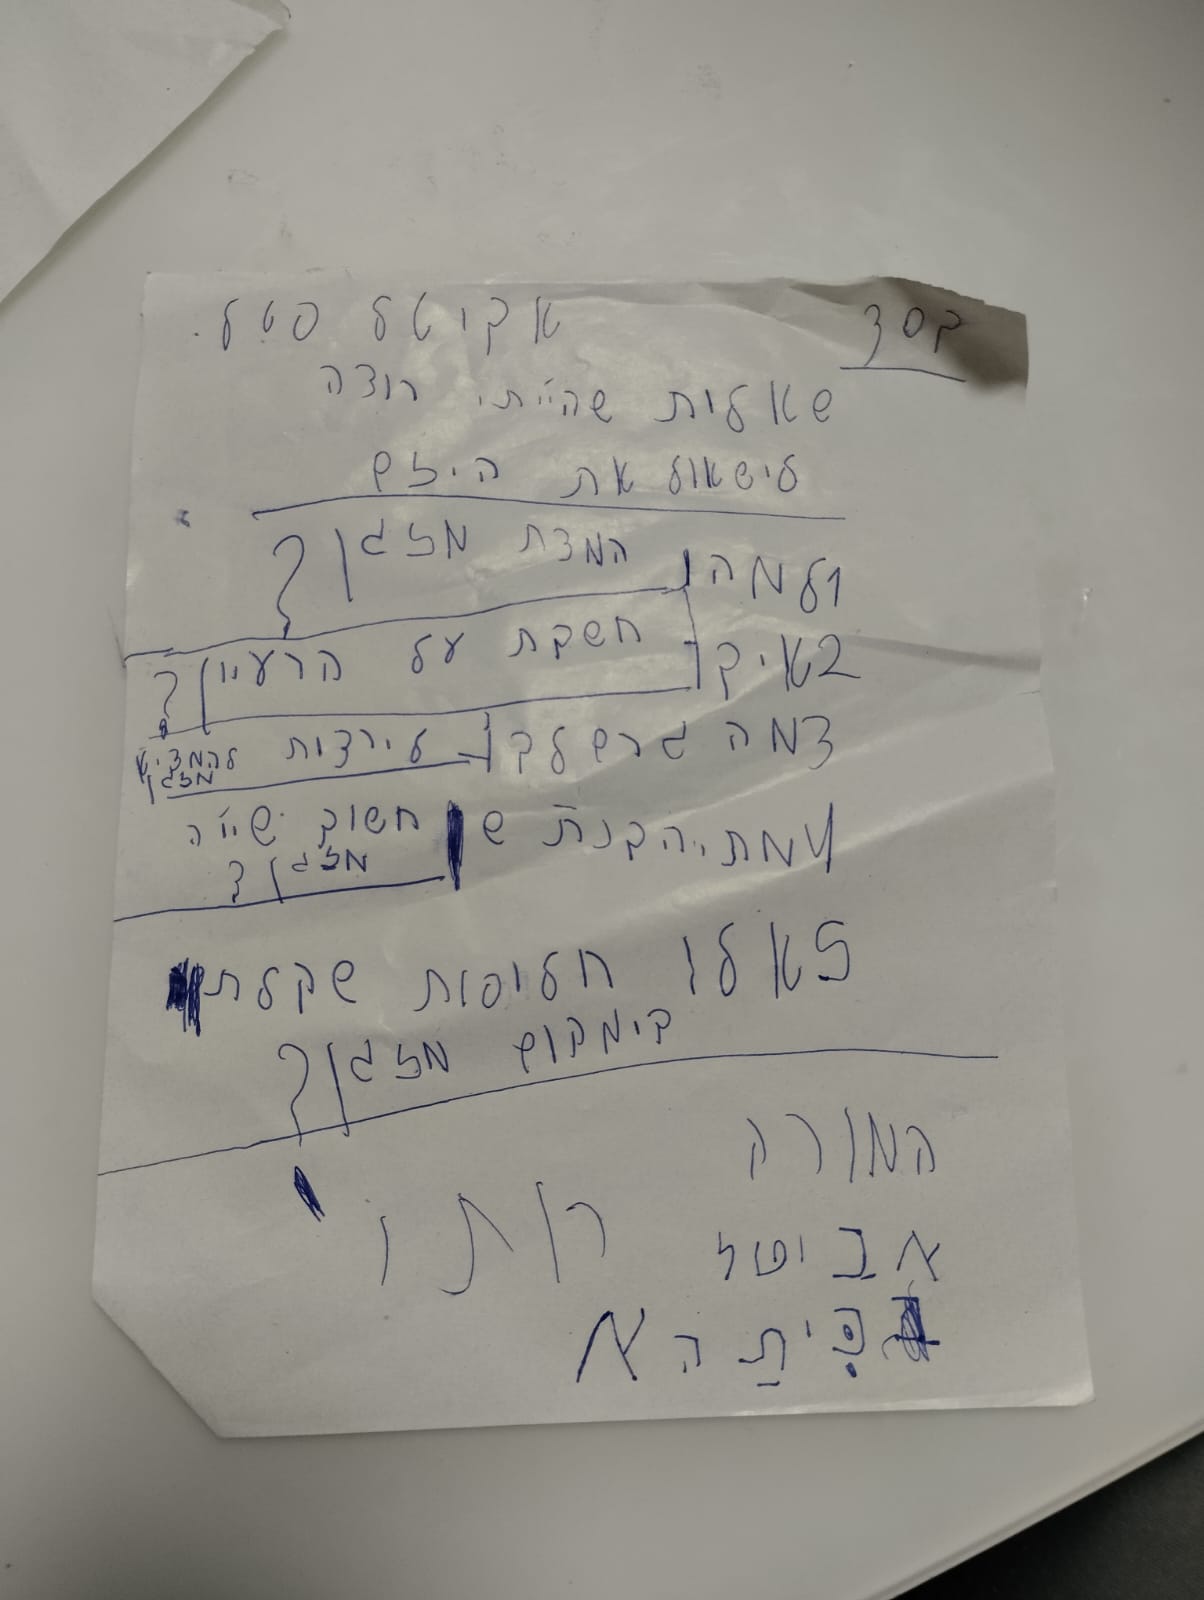 בסד
אביטל סטל
שאלות שהייתי רוצה
לישאול את היזם
1 למה המצת מזגן?
2 איך חשבת על הרעיון?
3 מה גרם לך לירצות להמציא
מזגן
4 מתי הבנת ש חשוב שייה
מזגן?
5 אלו חליפות שקלת
בימקום מזגן?
המורה
אביטל רותי
כיתה א